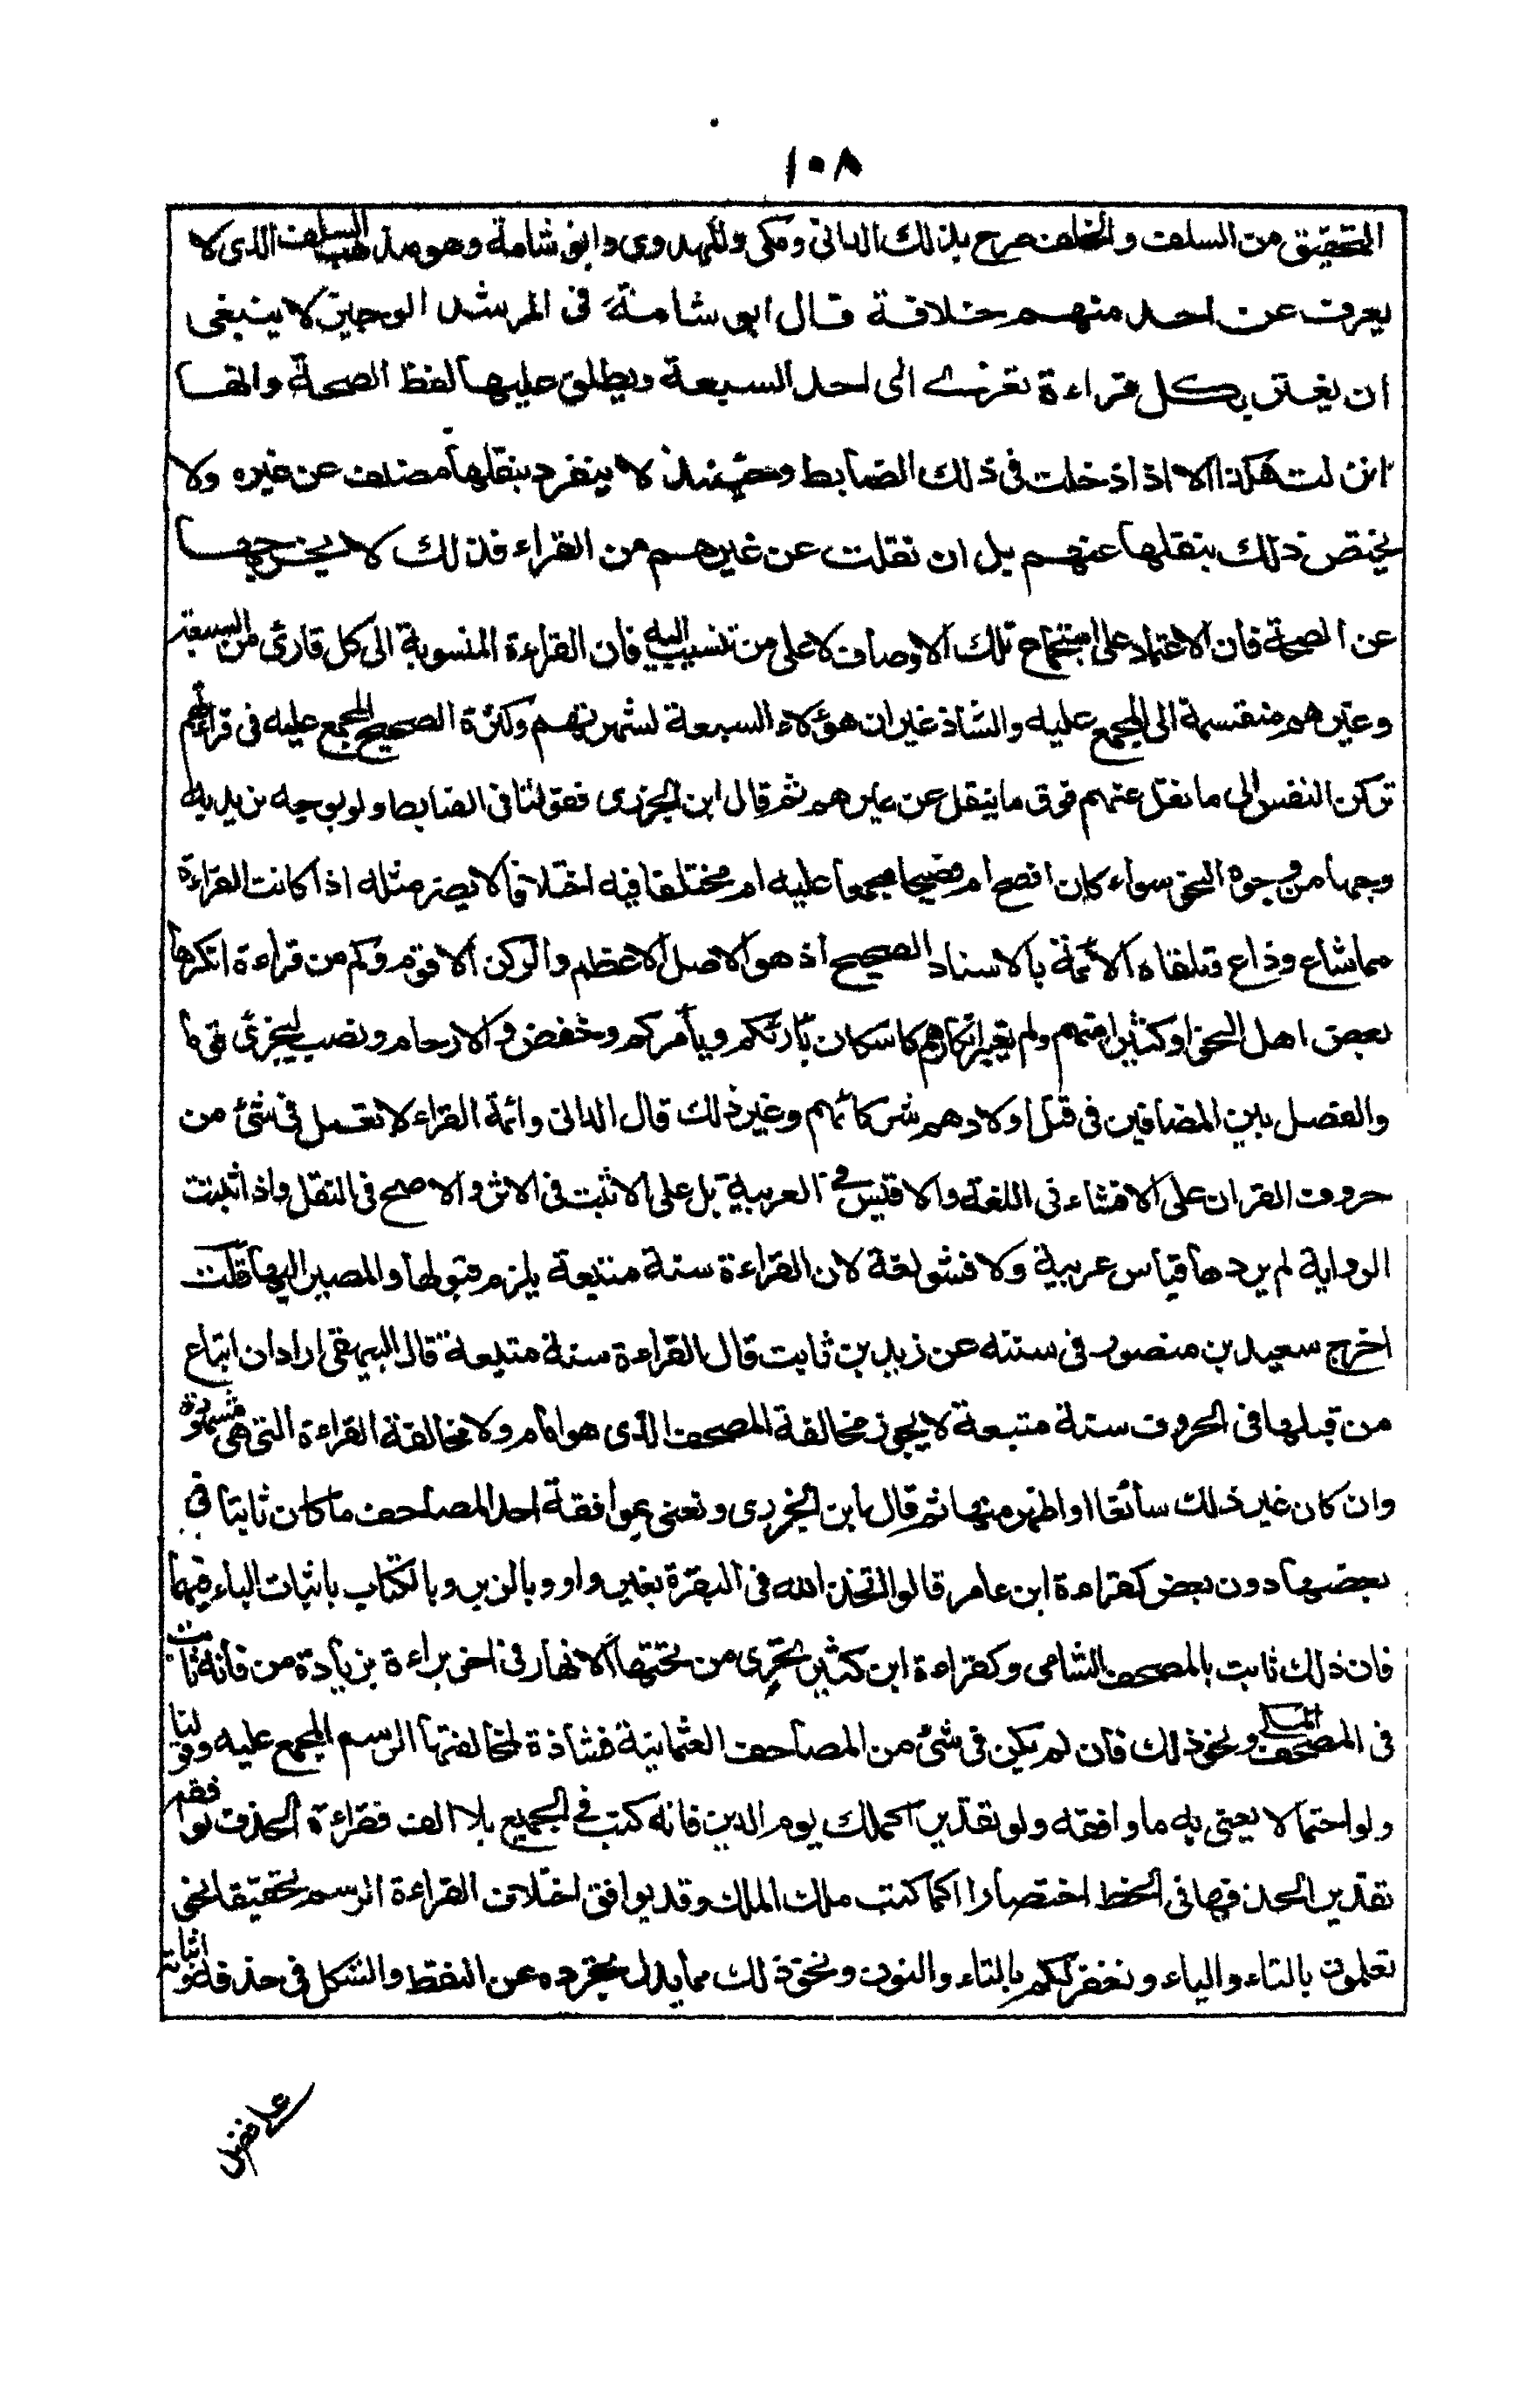 ١٠٨
التحقيق من السلف والخلف صرح بذلك الدانى ومكى والمهدوى وابو شامة وهو مذهب السلف الذى لا
يعرف عن احد منهم خلافة قال ابو شامة فى المرشد الوجيز لا ينبغى
ان يغتر بكل قراءة تعزى الى احد السبعة ويطلق عليها لفظ الصحة وانها
انزلت هكذا الا اذا دخلت فى ذلك الضابط وحينئذ لا ينفرد بنقلها مصنف عن غيره ولا
يختص ذلك بنقلها عنهم بل ان نقلت عن غيرهم من القراء فذلك لا يخرجها
عن الصحة فان الاعتماد على استجماع تلك الاوصاف لا على من تنسب اليه فان القراءة المنسوبة الى كل قارئ من السبعة
وغيرهم منقسمة الى المجمع عليه والشاذ غير ان هؤلاء السبعة لشهرتهم وكثرة الصحيح المجمع عليه فى قراءتهم
تركن النفس الى ما نقل عنهم فوق ما ينقل عن غيرهم ثم قال ابن الجزرى فقولنا فى الضابط ولو بوجه نريد به
وجها من وجوه النحو سواء كان افصح ام فصيحا مجمعا عليه ام مختلفا فيه اختلافا لا يضر مثله اذا كانت القراءة
مما شاع وذاع وتلقاه الائمة بالاسناد الصحيح اذ هو الاصل الاعظم والركن الاقوم وكم من قراءة انكرها
بعض اهل النحو او كثير منهم ولم يعتبر انكارهم كاسكان بارئكم ويأمركم وخفض والارحام ونصب ليجزى قوما
والفصل بين المضافين فى قتل اولادهم شركائهم وغير ذلك قال الدانى وائمة القراء لا تعمل فى شئ من
حروف القران على الافشاء فى اللغة والاقيس فى العربية بل على الاثبت فى الاثر والاصح فى النقل واذا ثبتت
الرواية لم يردها قياس عربية ولا فشو لغة لان القراءة سنة متبعة يلزم قبولها والمصير اليها قلت
اخرج سعيد بن منصور فى سننه عن زيد بن ثابت قال القراءة سنة متبعة قال البيهقى اراد ان اتباع
من قبلها فى الحروف سنة متبعة لا يجوز مخالفة المصحف الذى هو امام ولا مخالفة القراءة التى هى مشهورة
وان كان غير ذلك سائغا او اظهر منها ثم قال ابن الجزرى ونعنى بموافقة احد المصاحف ما كان ثابتا فى
بعضها دون بعض كقراءة ابن عامر قالوا اتخذ الله فى البقرة بغير واو وبالزبر وبالكتاب باثبات الباء فيهما
فان ذلك ثابت بالمصحف الشامى وكقراءة ابن كثير تجرى من تحتها الانهار فى اخر براءة بزيادة من فانه ثابت
فى المصحف المكى ونحو ذلك فان لم يكن فى شئ من المصاحف العثمانية فشاذة لمخالفتها الرسم المجمع عليه وقولنا
ولو احتمالا يعنى به ما وافقه ولو تقديرا كملك يوم الدين فانه كتب فى الجميع بلا الف فقراءة الحذف توافقه
تقدير الحذفها فى الخط اختصارا كما كتب ملك الملك وقد يوافق اختلاف القراءة الرسم تحقيقا نحو
تعلمون بالتاء والياء ونغفر لكم بالتاء والنون ونحو ذلك مما يدل تجرده عن النقط والشكل فى حذفه واثباته